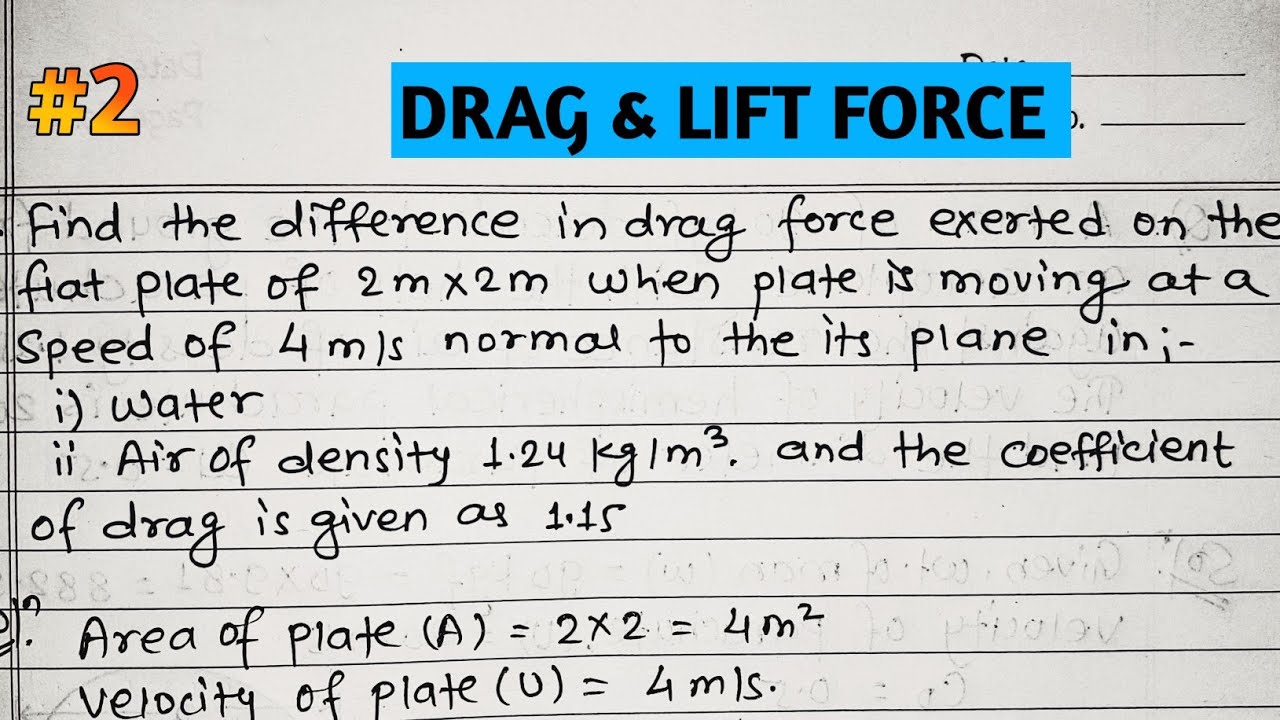 #2
DRAG & LIFT FORCE
Find the difference in drag force exerted on the
flat plate of 2m x 2m when plate is moving at a
Speed of 4 m/s normal to the its plane in;-
i) water
ii Air of density 1.24 kg/m³. and the coefficient
of drag is given as 1.15
Area of plate (A) = 2×2 = 4m²
velocity of plate (U) = 4 m/s.